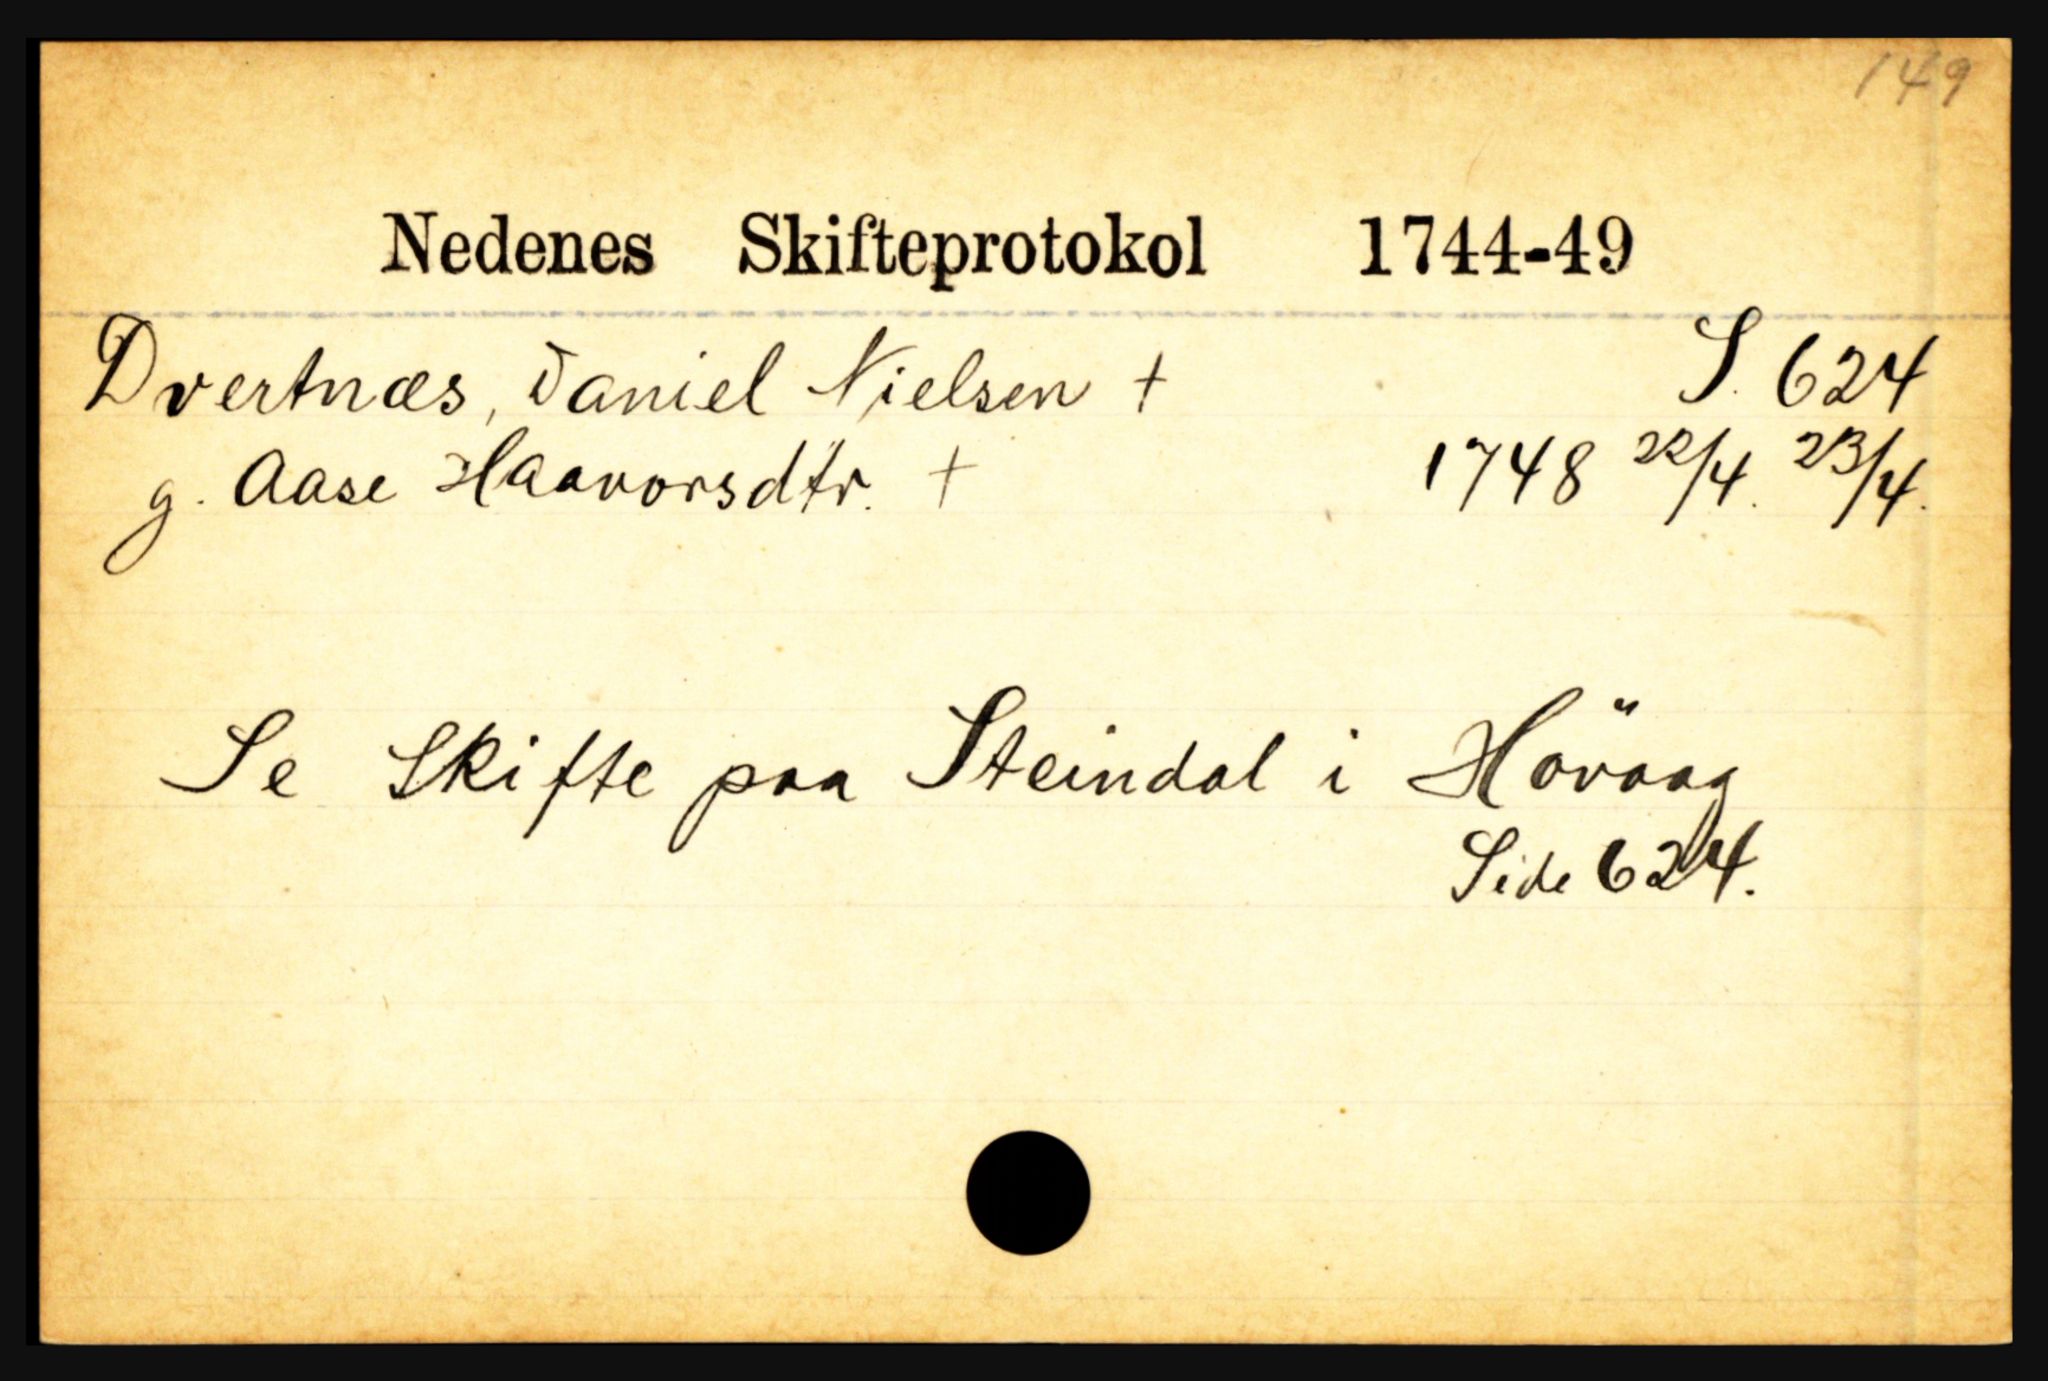 149
Nedenes Skifteprotokol 1744-49
Dvertnæs, Daniel Nielsen + S. 624
g. Aase Haavorsdtr. + 1748 22/4. 23/4.
Se Skifte paa Steindal i Hövaag
Side 624.